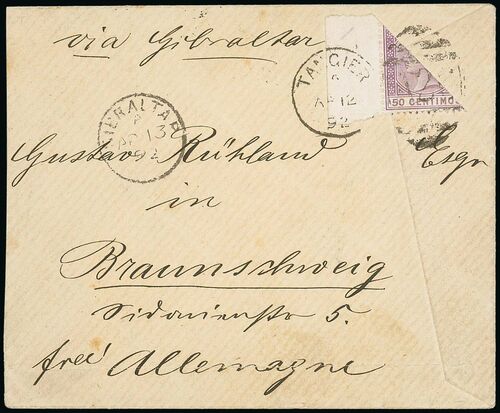 via Gibraltar
TANGIER
A
AP 12
92
50 CENTIMO
GIBRALTAR
A
AP 13
92
Gustav Rühland Esqr
in
Braunschweig
Sidonienstr 5.
frei Allemagne